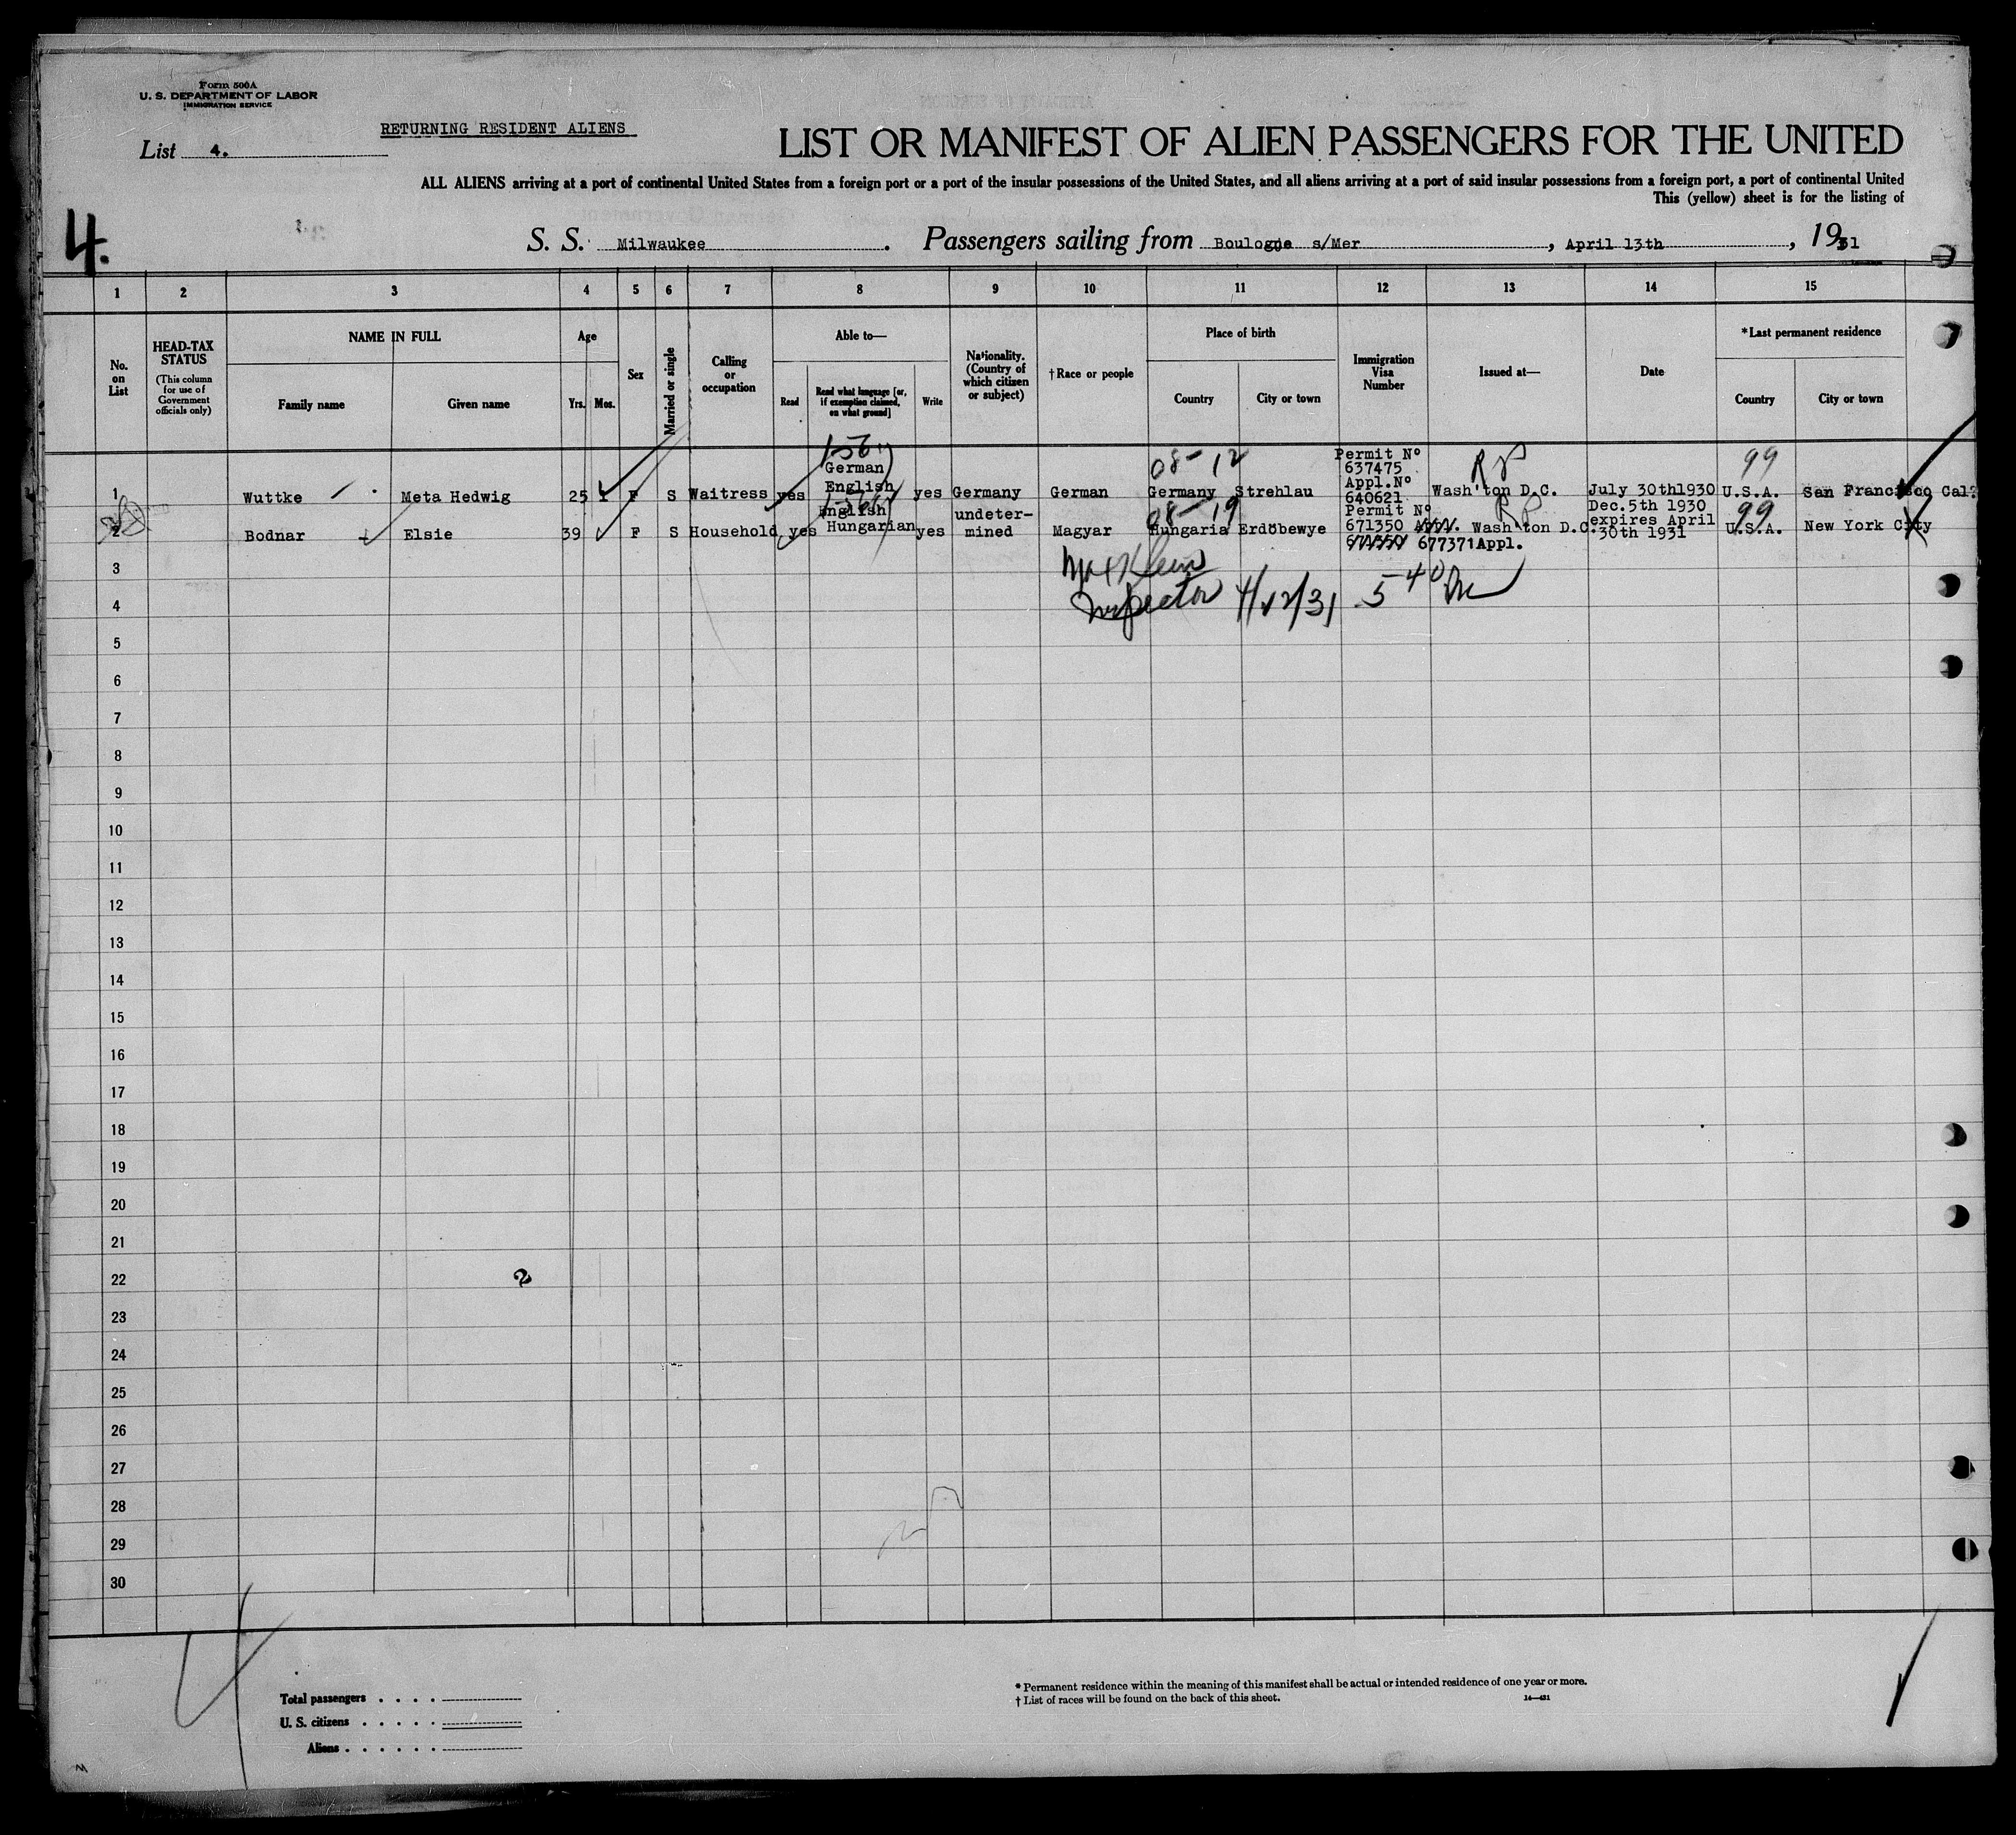 Form 500A
U. S. DEPARTMENT OF LABOR
IMMIGRATION SERVICE
RETURNING RESIDENT ALIENS
List 4.
LIST OR MANIFEST OF ALIEN PASSENGERS FOR THE UNITED
ALL ALIENS arriving at a port of continental United States from a foreign port or a port of the insular possessions of the United States, and all aliens arriving at a port of said insular possessions from a foreign port, a port of continental United
This (yellow) sheet is for the listing of
4.
S. S. Milwaukee. Passengers sailing from Boulogne s/Mer, April 13th, 1931
1 2 3 4 5 6 7 8 9 10 11 12 13 14 15
No. on List
HEAD-TAX STATUS
(This column for use of Government officials only)
NAME IN FULL
Family name
Given name
Age
Yrs. Mos.
Sex
Married or single
Calling or occupation
Able to—
Read
Read what language [or, if exemption claimed, on what ground]
Write
Nationality. (Country of which citizen or subject)
† Race or people
Place of birth
Country
City or town
Immigration Visa Number
Issued at—
Date
*Last permanent residence
Country
City or town
1 Wuttke Meta Hedwig 25 F S Waitress yes German English yes Germany German 08-12 Germany Strehlau Permit Nº 637475 Appl.Nº 640621 RP Wash'ton D.C. July 30th1930 99 U.S.A. San Francisco Cal.
2 Bodnar Elsie 39 F S Household yes English Hungarian yes undeter- mined Magyar 08-19 Hungaria Erdöbewye Permit Nº 671350 677371Appl. RP Wash'ton D.C. Dec.5th 1930 expires April 30th 1931 99 U.S.A. New York City
3 Max Klein
4 Inspector 4/12/31 5 40
5
6
7
8
9
10
11
12
13
14
15
16
17
18
19
20
21
22
23
24
25
26
27
28
29
30
Total passengers . . . .
U. S. citizens . . . . .
Aliens . . . . . .
* Permanent residence within the meaning of this manifest shall be actual or intended residence of one year or more.
† List of races will be found on the back of this sheet.